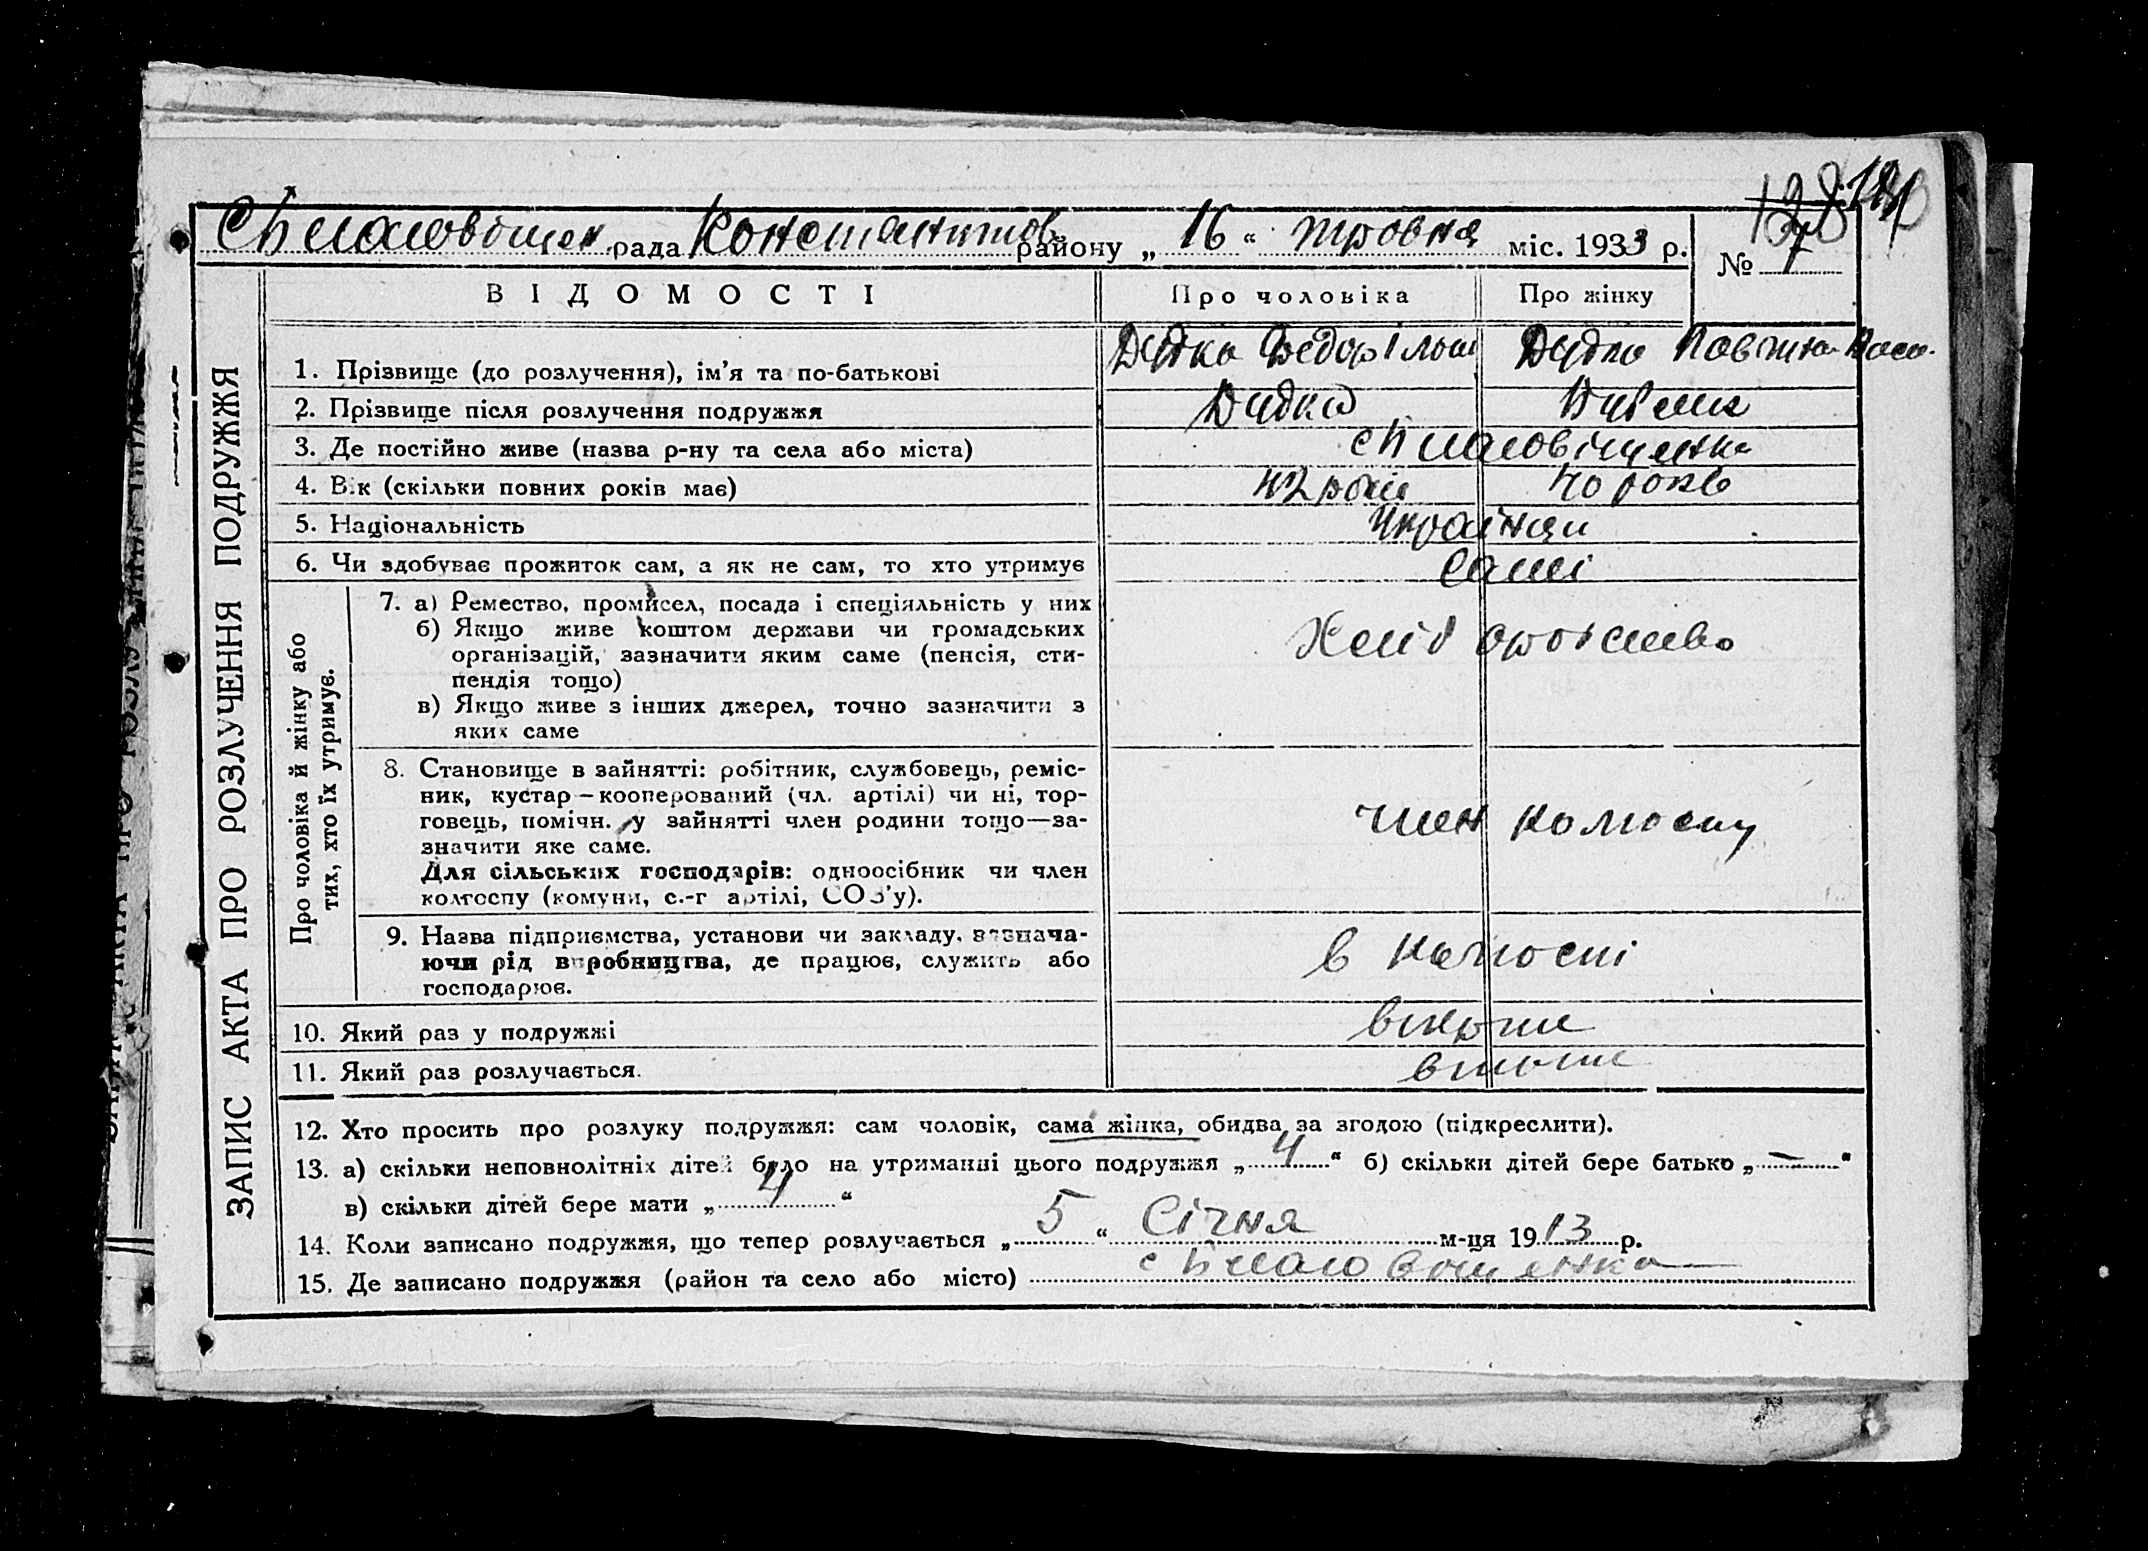 рада Константинов району „ 16 “ травня міс. 1933 р.
№ 7
ВІДОМОСТІ Про чоловіка Про жінку
1. Прізвище (до розлучення), ім’я та по-батькові Дудка Федор Дудка
2. Прізвище після розлучення подружжя Дудка
3. Де постійно живе (назва р-ну та села або міста)
4. Вік (скільки повних років має) 42 роки 40 років
5. Національність Українци
6. Чи здобуває прожиток сам, а як не сам, то хто утримує самі
Про чоловіка й жінку або
тих, хто їх утримує.
7. а) Ремество, промисел, посада і спеціяльність у них
б) Якщо живе коштом держави чи громадських
організацій, зазначити яким саме (пенсія, сти-
пендія тощо)
в) Якщо живе з інших джерел, точно зазначити з
яких саме
Хліб оробство
8. Становище в зайнятті: робітник, службовець, реміс-
ник, кустар — кооперований (чл. артілі) чи ні, тор-
говець, помічн. у зайнятті член родини тощо — за-
значити яке саме.
Для сільських господарів: одноосібник чи член
колгоспу (комуни, с.-г артілі, СОЗ’у).
член колгоспу
9. Назва підприємства, установи чи закладу, зазнача-
ючи рід виробництва, де працює, служить або
господарює.
в колгоспі
10. Який раз у подружжі вперше
11. Який раз розлучається.
12. Хто просить про розлуку подружжя: сам чоловік, сама жінка, обидва за згодою (підкреслити).
13. а) скільки неповнолітніх дітей було на утриманні цього подружжя „ 4 “ б) скільки дітей бере батько „ — “
в) скільки дітей бере мати „ 4 “
14. Коли записано подружжя, що тепер розлучається „ 5 “ Січня м-ця 1913 р.
15. Де записано подружжя (район та село або місто)
ЗАПИС АКТА ПРО РОЗЛУЧЕННЯ ПОДРУЖЖЯ